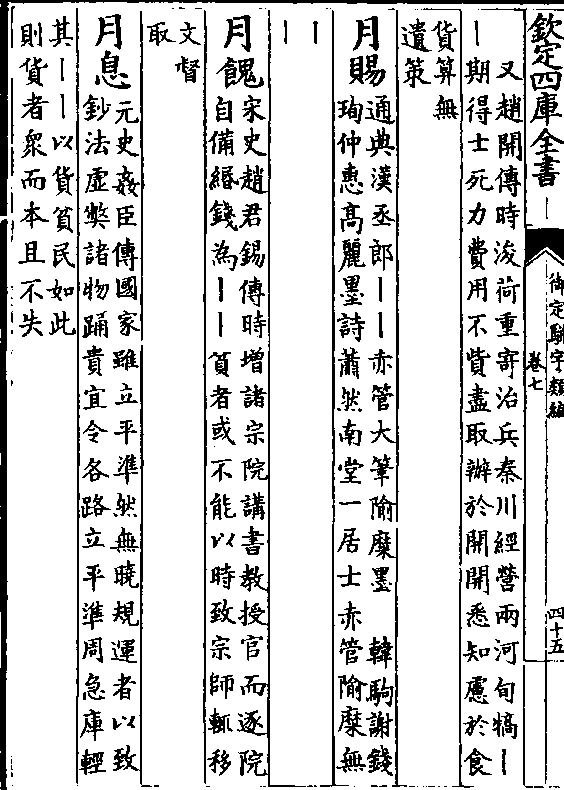 欽定四庫全書
御定駢字類編
卷七
四十五
又趙開傳時浚荷重寄治兵秦川經營兩河旬犒丨
丨期得士死力費用不貲盡取辦於開開悉知慮於食
貨算無
遺策
月賜
通典漢丞郎丨丨赤管大筆隃糜墨 韓駒謝錢
珣仲惠高麗墨詩蕭然南堂一居士赤管隃糜無
丨
丨
月餽
宋史趙君錫傳時增諸宗院講書教授官而逐院
自備緡錢為丨丨貧者或不能以時致宗師輒移
文督
取
月息
元史姦臣傳國家雖立平準然無曉規運者以致
鈔法虛弊諸物踊貴宜令各路立平準周急庫輕
其丨丨以貸貧民如此
則貨者衆而本且不失